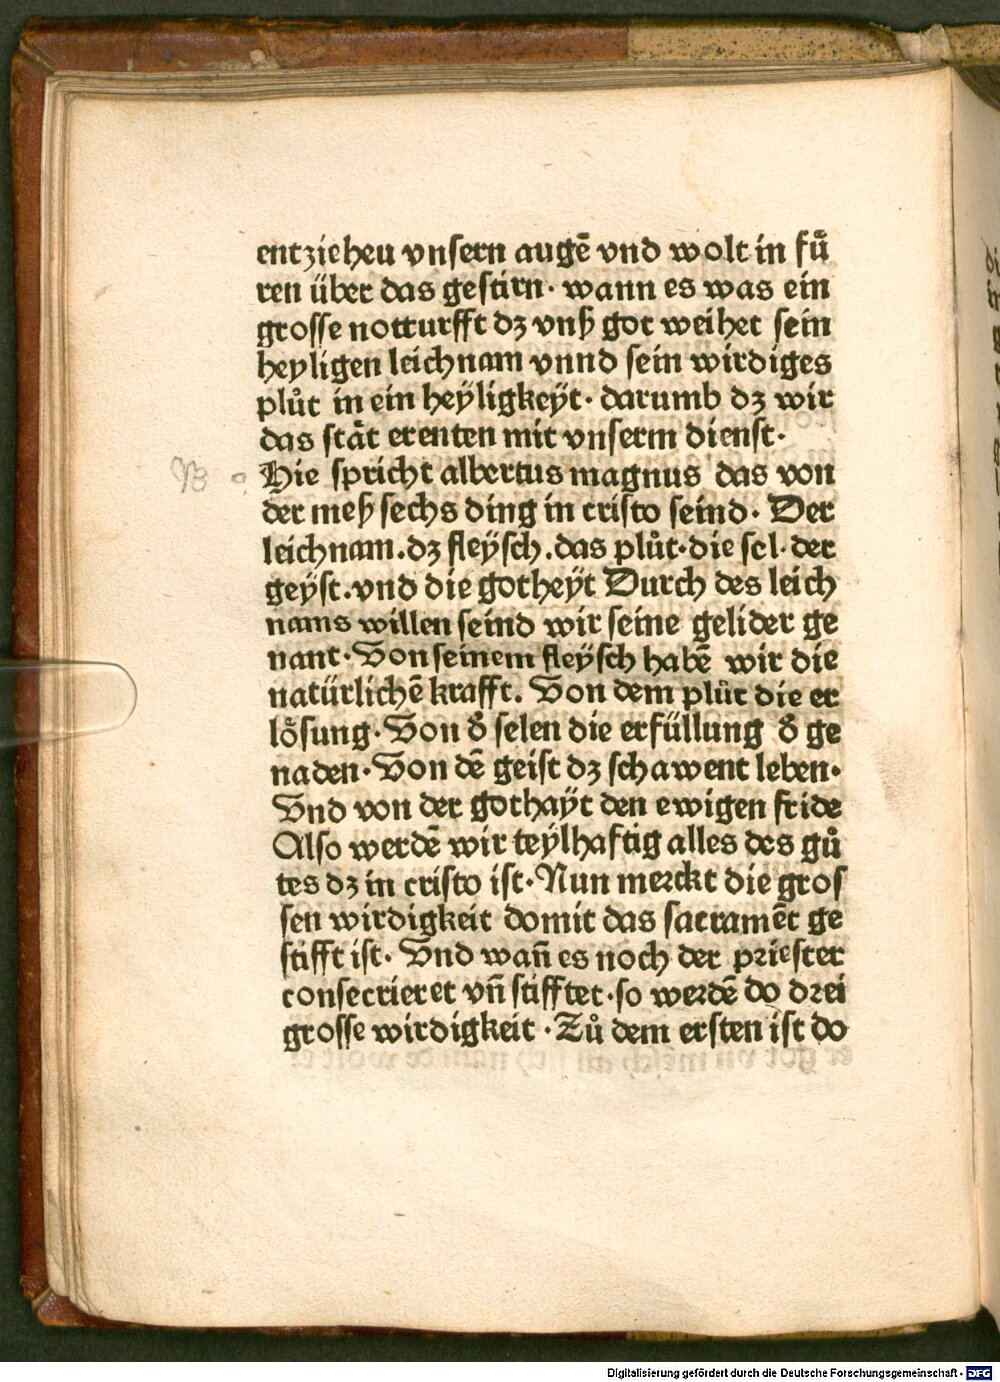 entzieheu vnsern augē vnd wolt in fuͤ
ren über das gestirn· wann es was ein
grosse notturfft dz vnß got weihet sein
heyligen leichnam vnnd sein wirdiges
pluͦt in ein heÿligkeÿt· darumb dz wir
das stät erenten mit vnserm dienst·
Hie spricht albertus magnus das von
der meß sechs ding in cristo seind· Der
leichnam.dz fleÿsch.das pluͦt·die sel·der
geÿst.vnd die gotheÿt Durch des leich
nams willen seind wir seine gelider ge
nant·Von seinem fleÿsch habē wir die
natürlichē krafft. Von dem plüt die er
loͤsung·Von d̾ selen die erfüllung d̾ ge
naden·Von dē geist dz schawent leben·
Vnd von der gothaÿt den ewigen fride
Also werdē wir teÿlhaftig alles des guͦ
tes dz in cristo ist·Nun merckt die gros
sen wirdigkeit domit das sacramēt ge
stifft ist· Vnd wañ es noch der priester
consecrieret vñ stifftet·so werdē do drei
grosse wirdigkeit ·Zuͦ dem ersten ist do
Digitalisierung gefördert durch die Deutsche Forschungsgemeinschaft - DFG